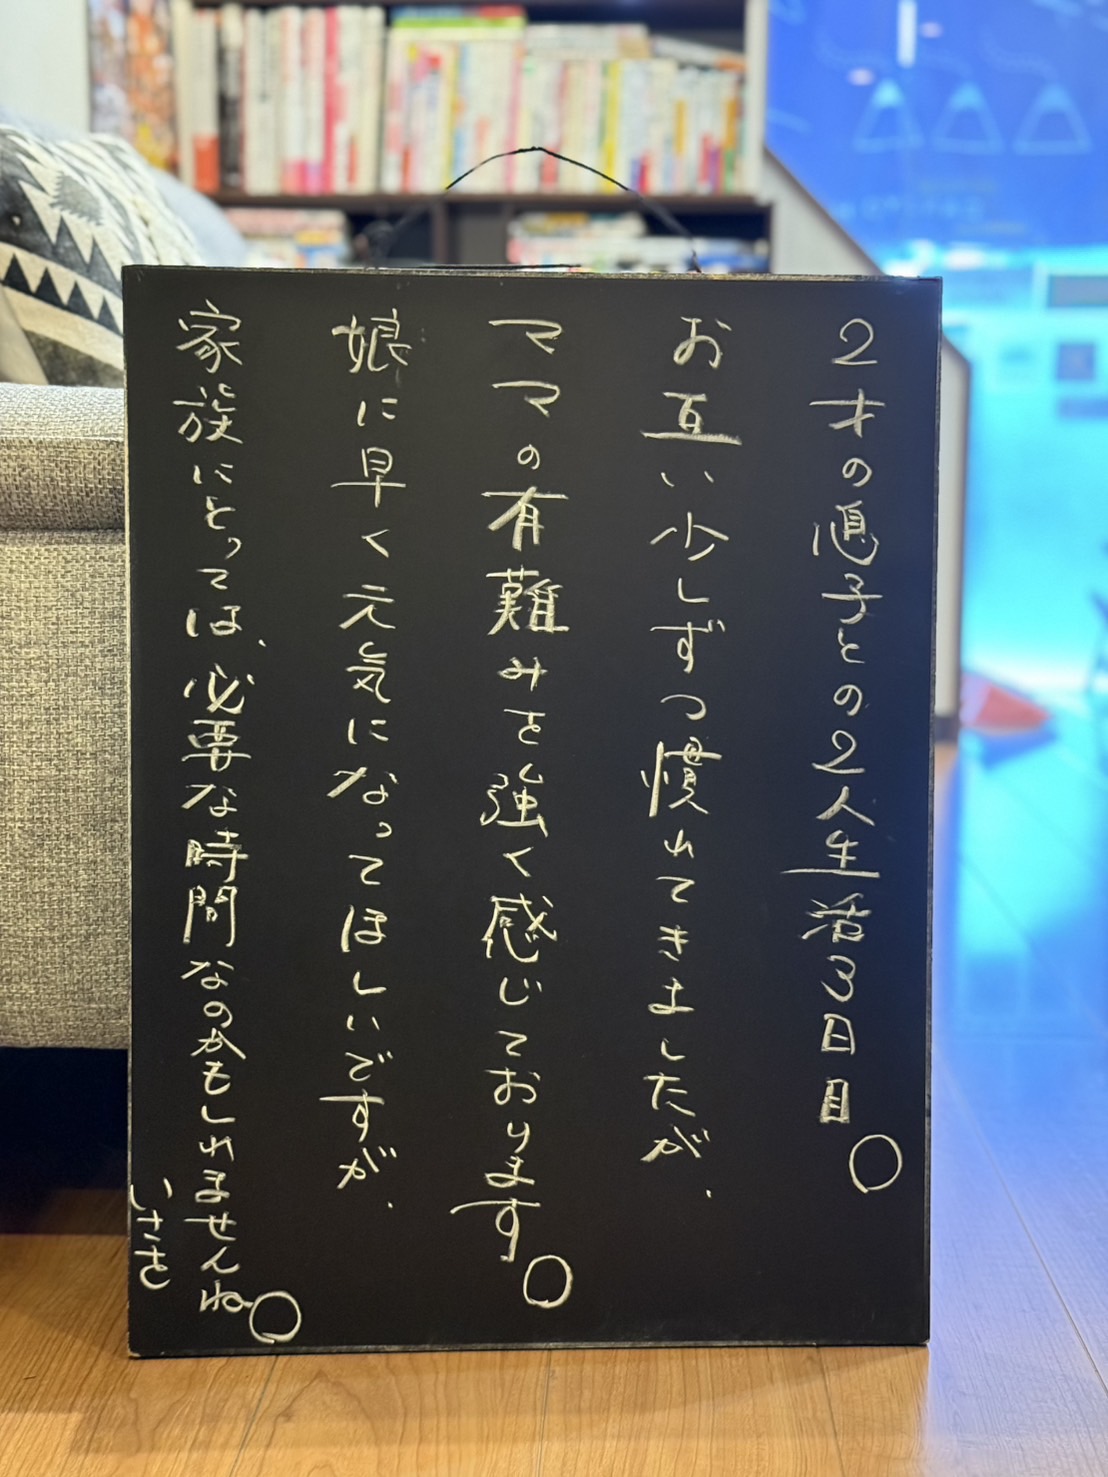 2才の息子との2人生活3日目。
お互い少しずつ慣れてきましたが、
ママの有難みを強く感じております。
娘に早く元気になってほしいですが、
家族にとっては、必要な時間なのかもしれませんね。
いさを